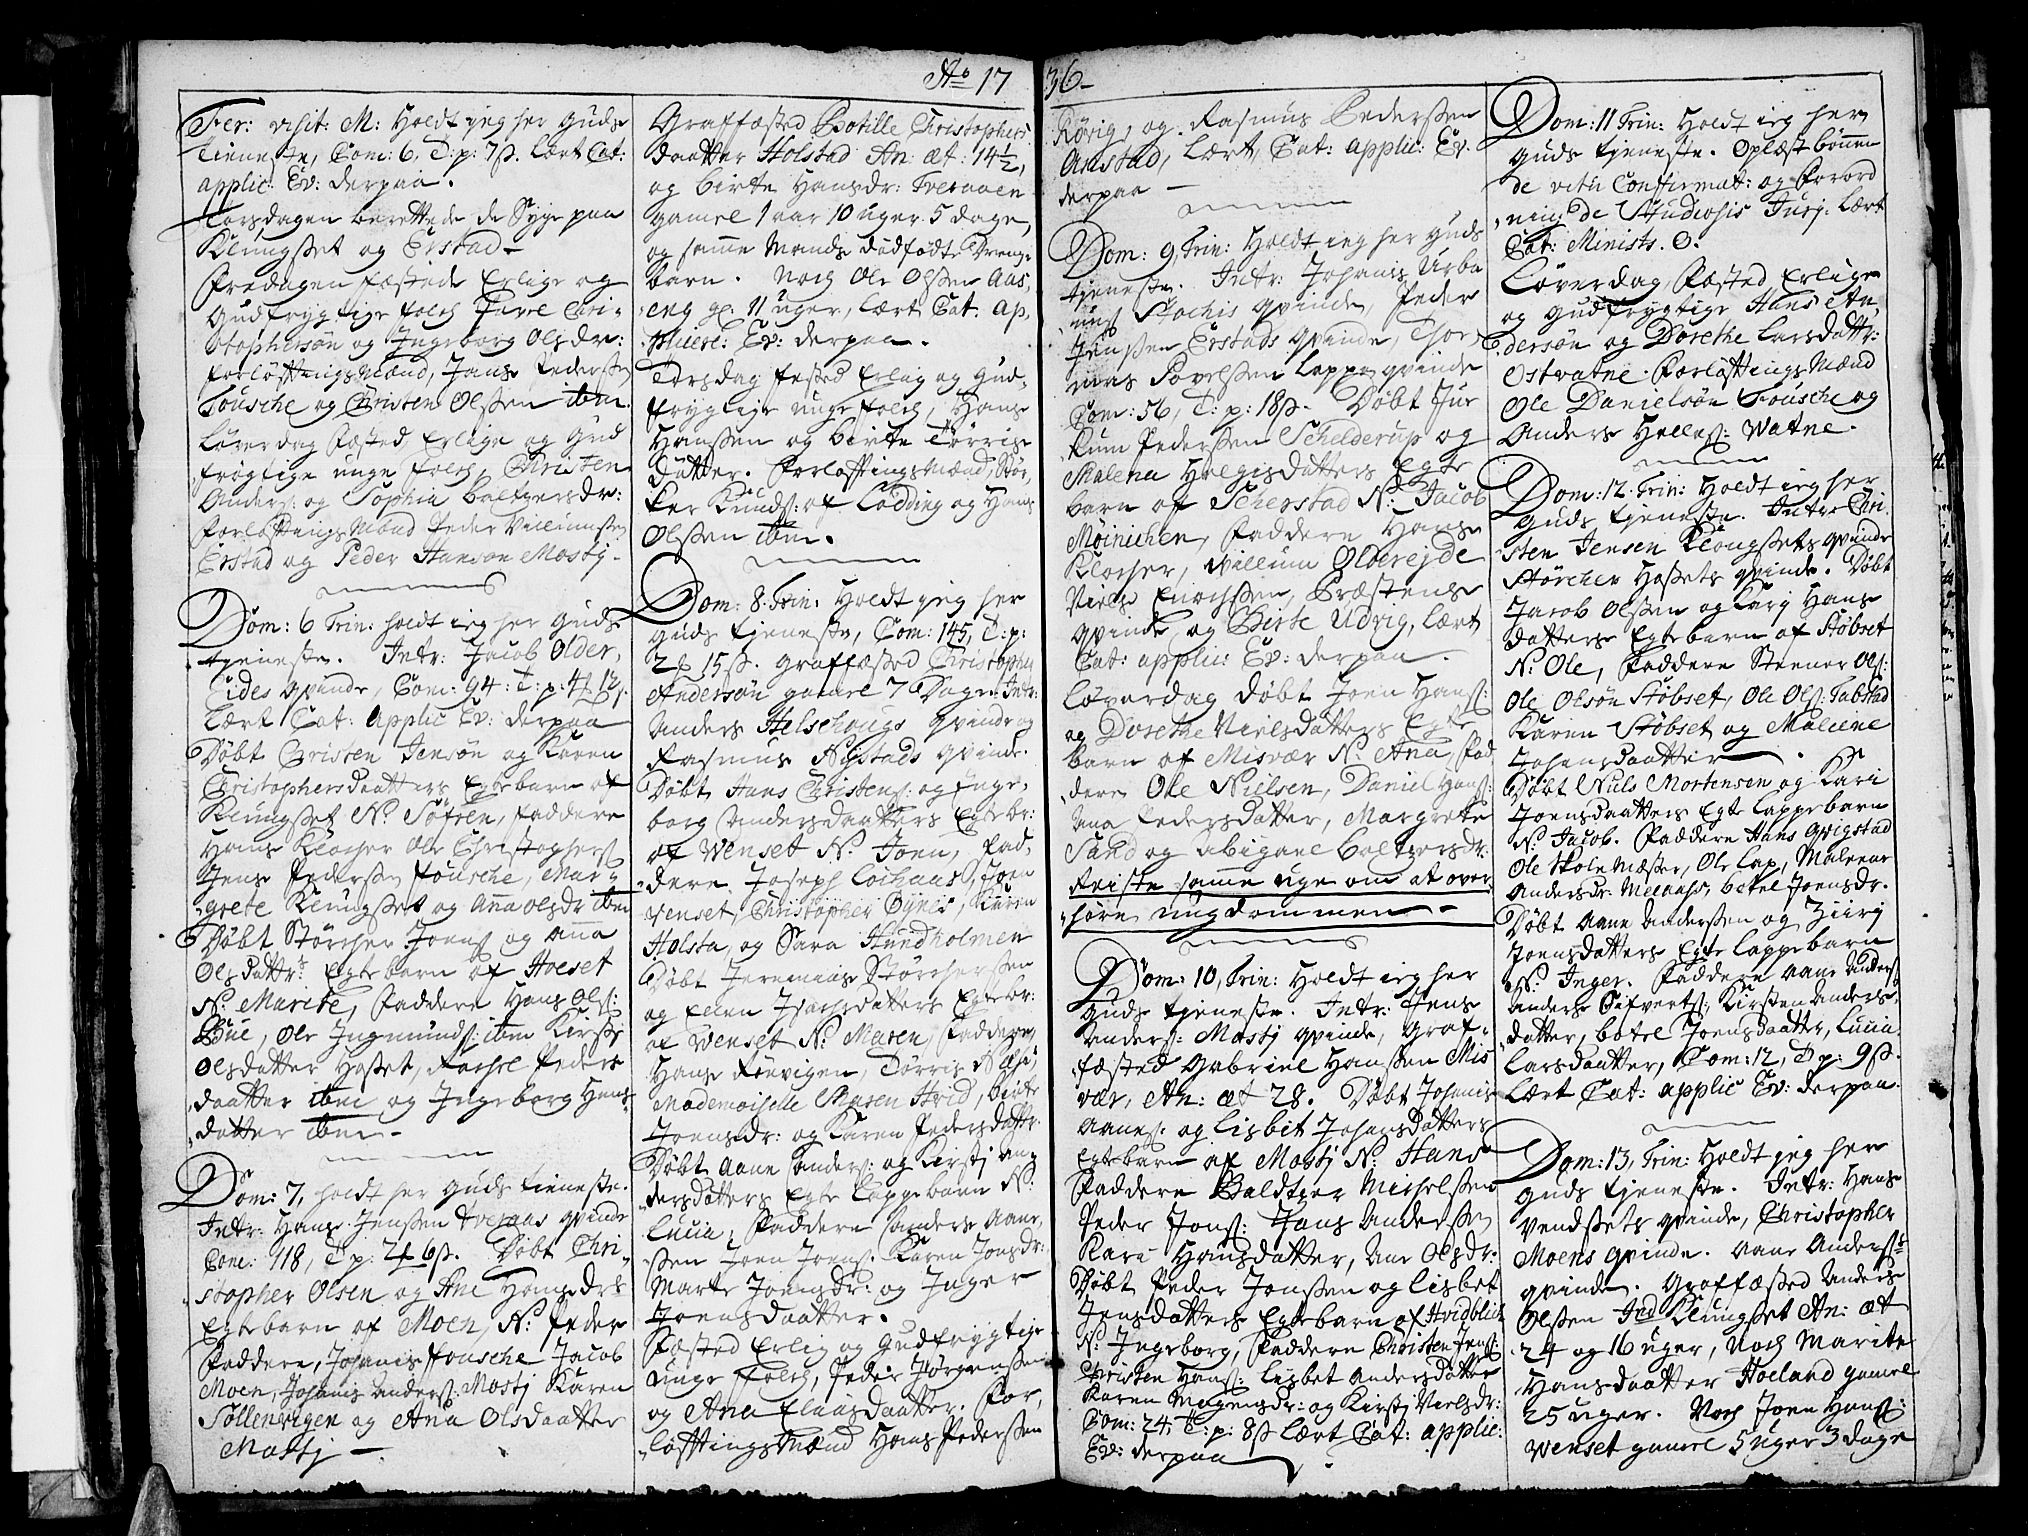 Ao 17
36
Fer: visit: M: Holdt jeg her Guds
tieneste, Com: 6, T: p: 7ß. lært Cat:
applic: Ev: derpaa.
Torsdagen berettede de Syge paa
Klungset og Erstad
Fredagen fæstede Erlige og
Gudfrygtige folch Povel Chri-
stophersøn og Ingeborg Olsdr:
forløftningsMænd, Jens Pedersen
Fousche og Christen Olssen ibm.
Løverdag Fæsted Erlige og Gud
frøgtige unge folch, Christen
Anders: og Sophia Baltzersdr:
forløftningsMænd Peder Villumsen
Erstad og Peder Hanson Mostj.
Dom: 6 Trin: holdt ieg her Guds
tjeneste. Intr: Jacob Older,
Eides qvinde, Com: 94: T: p: 4ƒ 12ß.
Lært Cat: applic Ev: derpaa
Døbt Christen Jensøn og Karen
Christophersdaatters Egtebarn af
Klungset N. Søfren, faddere
Hans Klocher Ole Christophers:
Jens Pedersen Fousche, Mar-
grete Klungset og Ana Olsdr ibm
Døbt Størcher Joens: og Anna
Olsdattr: Egtebarn af Hoeset
N: Marite, Faddere Hans Ols:
Bue, Ole Ingmunds: ibm Kirste
Olsdatter Hoset, Rachel Peders
daatter ibm og Ingeborg Hans
datter ibm.
Dom: 7, holdt her Guds tieneste.
Intr: Hans Jenssen Tveraas qvinde
Com: 118, T: p: 2ƒ 6ß. Døbt Chri-
stopher Olsen og Ane Hansdrs
Egtebarn af Moen, N: Peder
Faddere, Johanis Fousche Jacob
Moen, Johanis Anders: Mostj Karen
Sollenvigen og Ana Olsdaatter
Mostj
Graffæsted Botille Christophers
daatter Holstad An: æt: 14½,
og Birte Hansdr: Tveraaen
gamel 1 aar 10 uger 5 dage,
og samme Mands dødfødte Dreng-
barn. Noch Ole Olssen Aas,
eng gl. 11 uger, lært Cat. ap,
plicre: Ev: derpaa.
Torsdag fæsted Erlig og Gud-
frygtige unge folch, Hans
Hanssen og Birte Tørris
datter. ForløftningsMænd, Stør,
ker Knuds: af Lødding og Hans
Olssen ibm.
Dom: 8. Trin: Holdt jeg her
Guds tjeneste, Com: 145, T: p:
2ƒ 15ß. Graffæsted Christopher
Andersøn gamel 7 Dage. Intr:
Anders Helsehaugs qvinde og
Rasmus Nystads qvinde.
Døbt Hans Christens: og Inge,
borg Andersdaatters Egtebr:
af Wenset N. Joen, Fad,
dere Joseph Lochaas, Joen
Venset, Christopher Øynes, Karen
Holsta, og Sara Hundholmen
Døbt Jeremias Størchersen
og Ellen Isachsdatters Egtebr:
af Wenset N: Maren, Faddere
Hans Røevigen, Tørris
Mademoiselle Maren Hvid, Birte
Joensdr: og Karen Pedersdattr
Døbt Aane Anders: og Kirstj An-
dersdatters Egte Lappebarn N:
Lucia, Faddere Anders Aane,
ssen Joen Joens: Karen Jonsdr:
Marte Joensdr: og Inger
Joensdaatter.
Fæsted Erlig og Gudfrygtige
unge folch, Peder Jørgensen
og Ana Eliasdaatter. For,
løftningsMænd Hans Pedersen
Røvig, og Rasmus Pedersen
Anstad, lært, Cat: applic: Ev:
derpaa
Dom: 9, Trin: Holdt ieg her Guds
tjeneste. Intr: Johanis Urba
nus Stochis qvinde, Peder
Jenssen Erstads qvinde, Thor
mas Povelsen Lappe qvinde
Com: 56, T: p: 18ß. Døbt Jur
rum Pedersen Schelderup og
Malena Helgisdatters Egte
barn af Scherstad N: Jacob
Møinichen, Faddere Hans
Klocher, Willum Alvereide
Niels Enochsen, Præstens
qvinde og Birte Udvig, lært
Cat: applic: Ev: derpaa.
Løverdag døbt Joen Hans:
og Dorethe Nielsdatters Egte
barn af Misvær N. Ana, Fad
dere Ole Nielsen, Daniel Hans:
Ana Pedersdatter, Margrete
Sund og Abigael Baltzersdr:
Reiste samme uge om at over
høre ungdommen
Dom: 10, Trin: Holdt ieg her
Guds tjeneste. Intr: Jens
Anders: Mostj qvinde, Graf-
fæsted Gabriel Hanssen Mis
vær, An: æt 28. Døbt Johanis
Aanes: og Lisbet Johansdatters
Egtebarn af Mostj N: Hans
Faddere Baldtzer Michelsen
Peder Jons: Hans Andersen
Kari Hansdatter, Ane Olsdr:
Døbt Peder Jonssen og Lisbet
Jensdatters Egtebarn af Hvidblich
N: Ingeborg, Faddere Christen Jens:
Christen Hans: Lisbet Andersdatter
Karen Mogensdr: og Kirstj Nielsdr:
Com: 24, T: p: 8ß lært Cat: applic:
Ev: derpaa
Dom: 11 Trin: Holdt ieg her
Guds tjeneste. Oplæst bønnen
de vitii Confirmat: og Forord
ning de Studiosis Jurj: Lært
Cat: Minists. O.
Løverdag Fæsted Erlige
og Gudfrygtige Hans An,
dersøn og Dorethe Larsdattr:
Ostvatne. ForløftningsMænd
Ole Danielsøn Fousche og
Anders Helles: Watne.
Dom: 12. Trin: Holdt ieg her
Guds tjeneste. Intr: Chri
sten Jensen Klongsets qvinde
Størcher Hosets qvinde. Døbt
Jacob Olssen og Karj Hans
datters Egtebarn af Støbset
N: Ole, Faddere Steener Ols:
Ole Olsøn Støbset, Ole Ols: Tabstad
Karen Støbset og Malene
Johansdaatter
Døbt Niels Mortensen og Kari
Joensdaatters Egte Lappebarn
N: Jacob. Faddere Hans Qvigstad
Ole SkoleMæster, Ole Lap, Malene
Andersdr: Melaaes, Betel Joensdr.
Døbt Aane Andersen og Ziirj
Joensdatters Egte Lappebarn
N: Inger. Faddere Aane Anders:
Anders Sifverts: Kirsten Anders-
datter, Botel Joensdaatter, Lucia
Larsdaatter, Com: 12, T: p: 9ß.
Lært Cat: applic Ev: derpaa.
Dom: 13, Trin: Holdt jeg her
Guds tjeneste. Intr: Hans
Vendsets qvinde, Christopher
Moens qvinde. Aane Anders:
qvinde. Graffæsted Anders
Olssen Ind Klungset An: æt
24 og 16 uger, Noch Marite
Hansdaatter Hoeland gamel
25 uger. Noch Joen Hans:
Wenset gamel 5 uger 3 dage